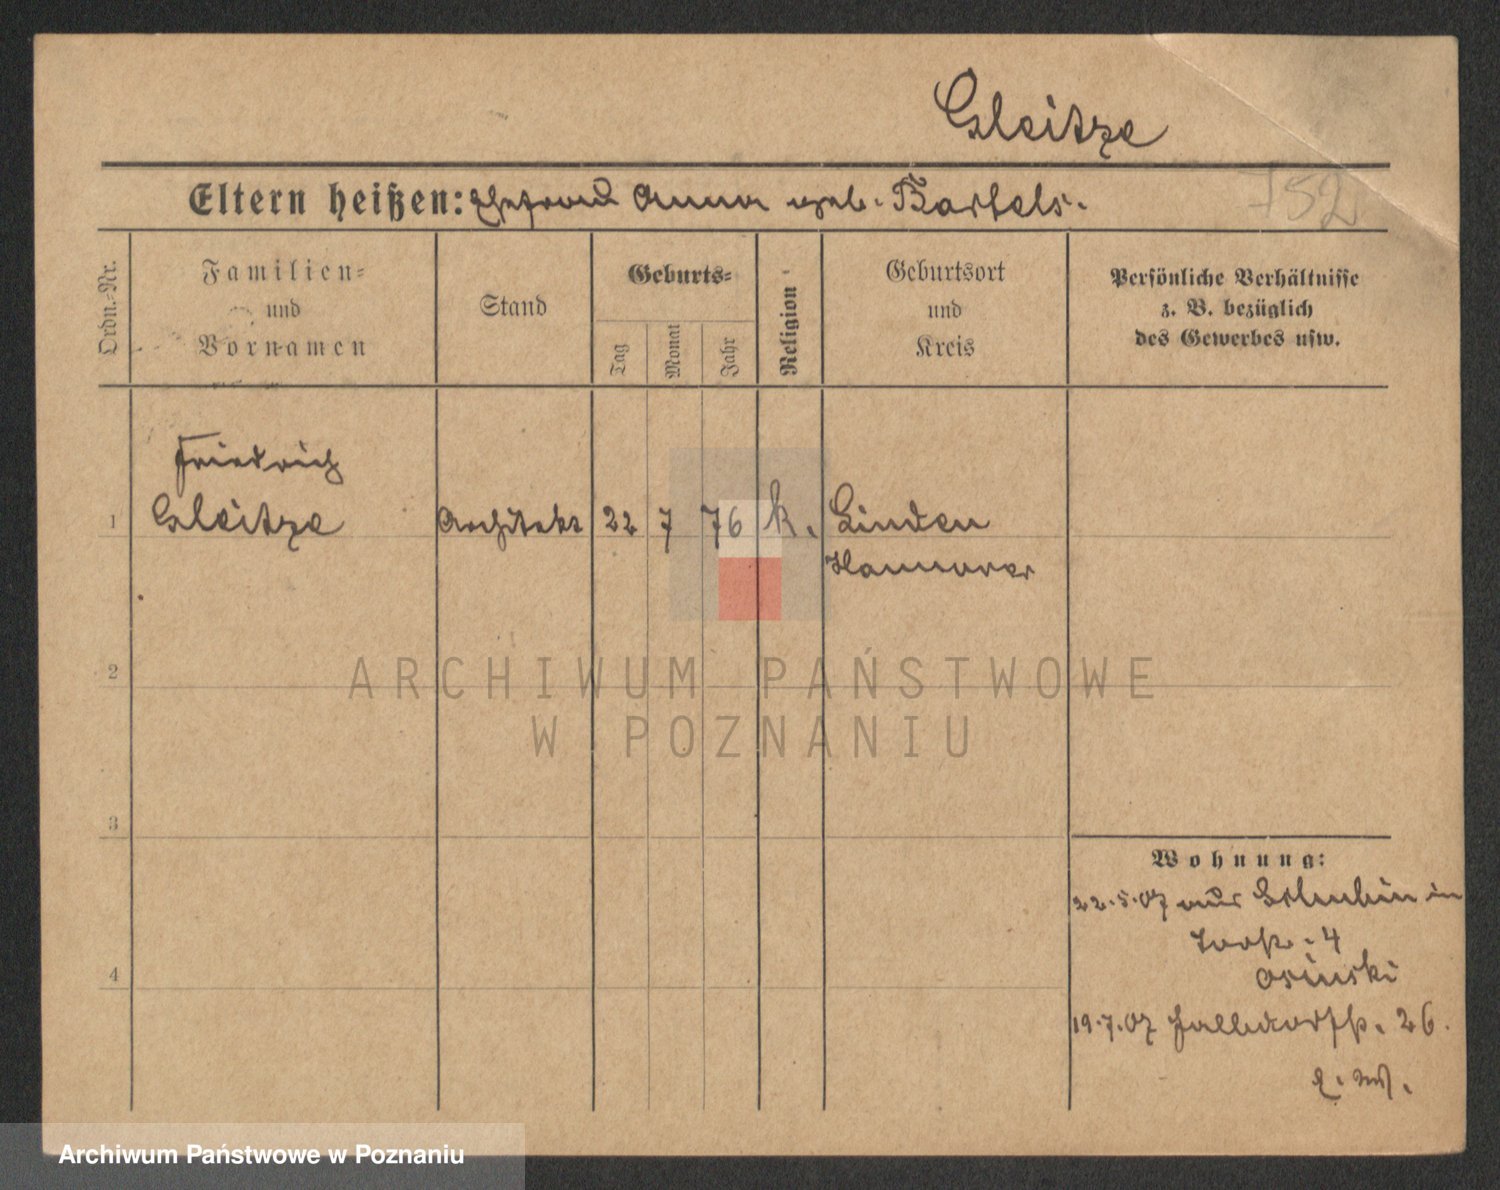 Gleitze
Eltern heißen: Ehefrau Anna geb. Bartels.
752
Ordn.-Nr.
Familien-
und
Vornamen
Stand
Geburts-
Tag
Monat
Jahr
Religion
Geburtsort
und
Kreis
Persönliche Verhältnisse
z. B. bezüglich
des Gewerbes usw.
Friedrich
1 Gleitze Architekt 22 7 76 k. Linden
Hannover
ARCHIWUM PAŃSTWOWE
W POZNANIU
2
3
4
Wohnung:
22.5.07 aus in
4
Osinski
19.7.07 26.
e. W.
Archiwum Państwowe w Poznaniu